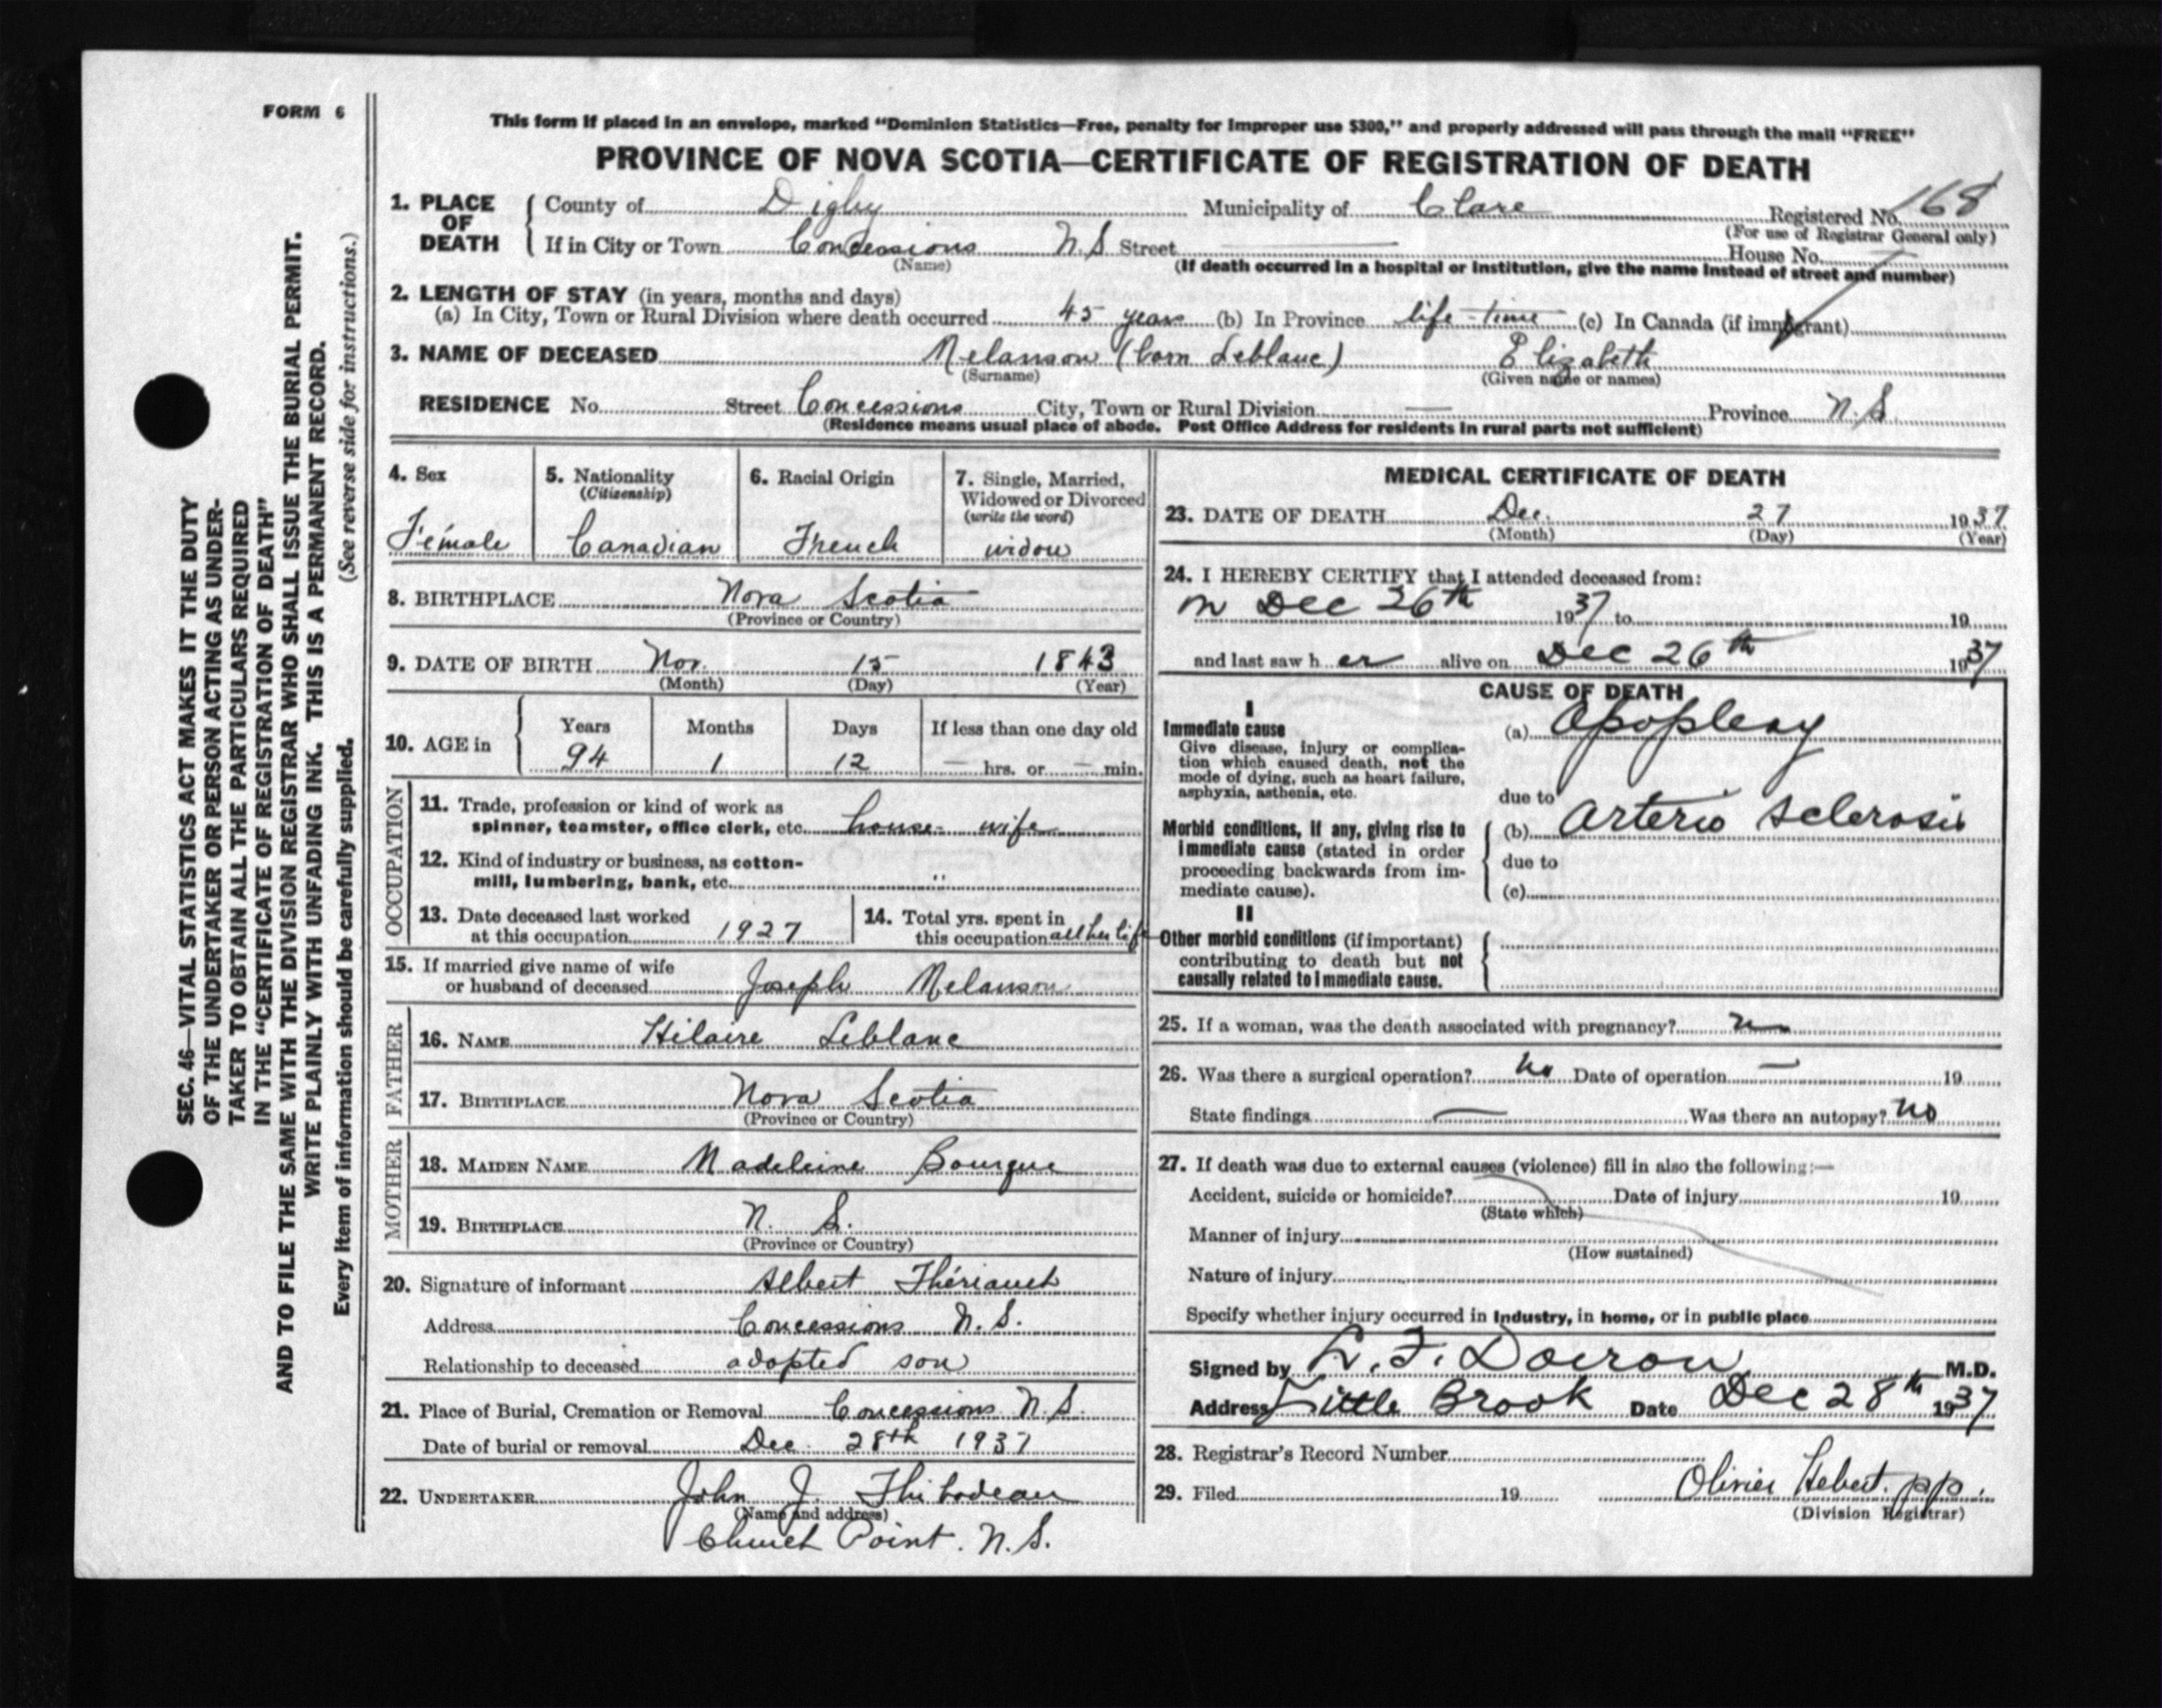 FORM 6
This form if placed in an envelope, marked "Dominion Statistics—Free, penalty for improper use $300," and properly addressed will pass through the mail "FREE"
PROVINCE OF NOVA SCOTIA—CERTIFICATE OF REGISTRATION OF DEATH
1. PLACE OF DEATH County of Digby Municipality of Clare Registered No. 168
(For use of Registrar General only)
If in City or Town Concessions N.S Street — House No. —
(Name)
(If death occurred in a hospital or institution, give the name instead of street and number)
2. LENGTH OF STAY (in years, months and days)
(a) In City, Town or Rural Division where death occurred 45 years (b) In Province life-time (c) In Canada (if immigrant)
3. NAME OF DECEASED Melanson (born Leblanc) Elizabeth
(Surname) (Given name or names)
RESIDENCE No. Street Concessions City, Town or Rural Division — Province N.S.
(Residence means usual place of abode. Post Office Address for residents in rural parts not sufficient)
4. Sex
Female
5. Nationality
(Citizenship)
Canadian
6. Racial Origin
French
7. Single, Married,
Widowed or Divorced
(write the word)
widow
8. BIRTHPLACE Nova Scotia
(Province or Country)
9. DATE OF BIRTH Nov. 15 1843
(Month) (Day) (Year)
10. AGE in
Years Months Days If less than one day old
94 1 12 — hrs. or — min.
OCCUPATION
11. Trade, profession or kind of work as
spinner, teamster, office clerk, etc. house-wife
12. Kind of industry or business, as cotton-
mill, lumbering, bank, etc. "
13. Date deceased last worked
at this occupation 1927
14. Total yrs. spent in
this occupation all her life
15. If married give name of wife
or husband of deceased Joseph Melanson
FATHER
16. NAME Hilaire Leblanc
17. BIRTHPLACE Nova Scotia
(Province or Country)
MOTHER
18. MAIDEN NAME Madeleine Bourque
19. BIRTHPLACE N. S.
(Province or Country)
20. Signature of informant Albert Thériault
Address Concessions N.S.
Relationship to deceased adopted son
21. Place of Burial, Cremation or Removal Concessions N.S.
Date of burial or removal Dec. 28th 1937
22. UNDERTAKER John J. Thibodeau
(Name and address)
Church Point. N.S.
MEDICAL CERTIFICATE OF DEATH
23. DATE OF DEATH Dec. 27 1937
(Month) (Day) (Year)
24. I HEREBY CERTIFY that I attended deceased from:
on Dec 26th 1937 to 19
and last saw her alive on Dec 26th 1937
CAUSE OF DEATH
I
Immediate cause
Give disease, injury or complica-
tion which caused death, not the
mode of dying, such as heart failure,
asphyxia, asthenia, etc.
(a) Apoplexy
due to
Morbid conditions, if any, giving rise to
immediate cause (stated in order
proceeding backwards from im-
mediate cause).
(b) Arterio sclerosis
due to
(c)
II
Other morbid conditions (if important)
contributing to death but not
causally related to immediate cause.
25. If a woman, was the death associated with pregnancy? no
26. Was there a surgical operation? no Date of operation — 19
State findings — Was there an autopsy? no
27. If death was due to external causes (violence) fill in also the following:—
Accident, suicide or homicide? Date of injury 19
(State which)
Manner of injury
(How sustained)
Nature of injury
Specify whether injury occurred in industry, in home, or in public place
Signed by L. F. Doiron M.D.
Address Little Brook Date Dec 28th 1937
28. Registrar's Record Number
29. Filed 19 Olivier Hebert. pp.
(Division Registrar)
SEC. 46—VITAL STATISTICS ACT MAKES IT THE DUTY
OF THE UNDERTAKER OR PERSON ACTING AS UNDER-
TAKER TO OBTAIN ALL THE PARTICULARS REQUIRED
IN THE "CERTIFICATE OF REGISTRATION OF DEATH"
AND TO FILE THE SAME WITH THE DIVISION REGISTRAR WHO SHALL ISSUE THE BURIAL PERMIT.
WRITE PLAINLY WITH UNFADING INK. THIS IS A PERMANENT RECORD.
Every item of information should be carefully supplied. (See reverse side for instructions.)